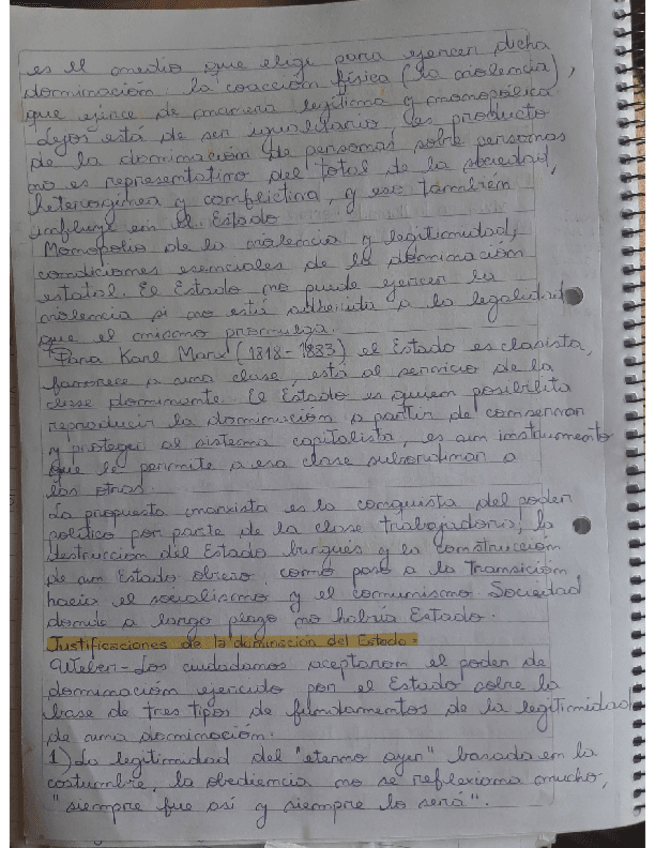 es el medio que elige para ejercer dicha
dominación: la coacción física (la violencia),
que ejerce de manera legítima y monopólica
Lejos está de ser igualitario, es producto
de la dominación de personas sobre personas
no es representativo del total de la sociedad,
heterogénea y conflictiva, y eso también
influye en el Estado
Monopolio de la violencia y legitimidad,
condiciones esenciales de la dominación
estatal. El Estado no puede ejercer la
violencia si no está adherida a la legalidad
que el mismo promulga.
Para Karl Marx (1818-1883) el Estado es clasista,
favorece a una clase, está al servicio de la
clase dominante. El Estado es quien posibilita
reproducir la dominación a partir de conservar
y proteger al sistema capitalista, es un instrumento
que le permite a esa clase subordinar a
las otras.
La propuesta marxista es la conquista del poder
político por parte de la clase trabajadora, la
destrucción del Estado burgués y la construcción
de un Estado obrero como paso a la Transición
hacia el socialismo y el comunismo. Sociedad
donde a largo plazo no habría Estado.
Justificaciones de la dominación del Estado:
Weber- Los ciudadanos aceptaron el poder de
dominación ejercido por el Estado sobre la
base de tres tipos de fundamentos de la legitimidad
de una dominación:
1) La legitimidad del "eterno ayer" basada en la
costumbre, la obediencia no se reflexiona mucho,
"siempre fue así y siempre lo será".